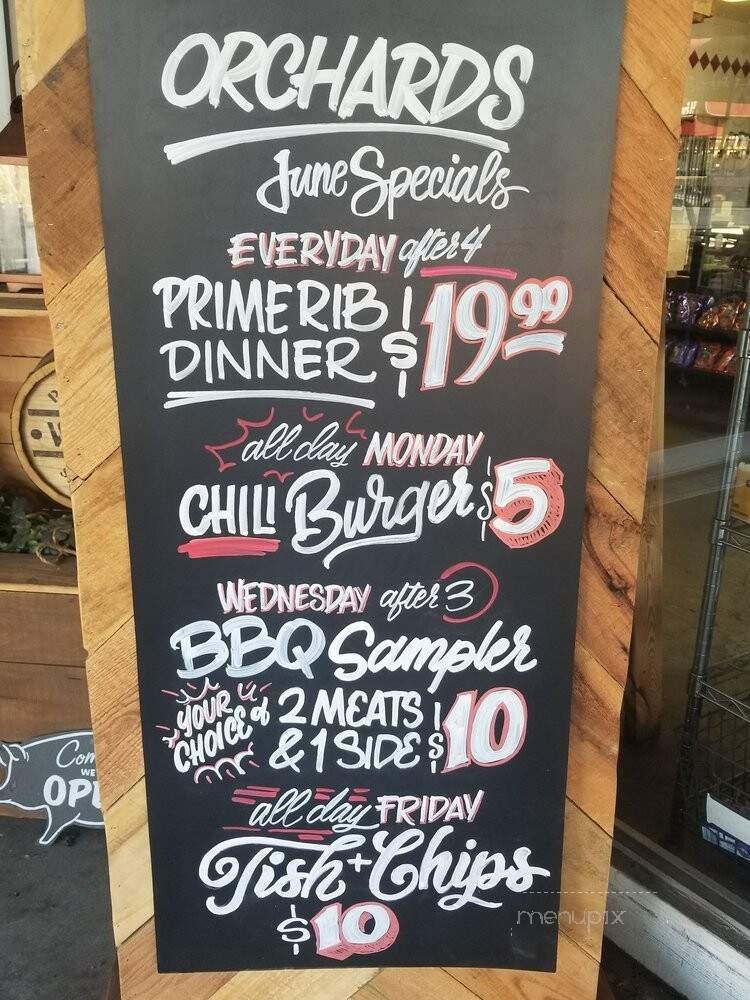 ORCHARDS
June Specials
EVERYDAY after 4
PRIME RIB
DINNER
$19.99
all day MONDAY
CHILI Burger $5
WEDNESDAY after 3
BBQ Sampler
YOUR CHOICE of
2 MEATS
& 1 SIDE
$10
all day FRIDAY
Fish + Chips
$10
WE
menupix